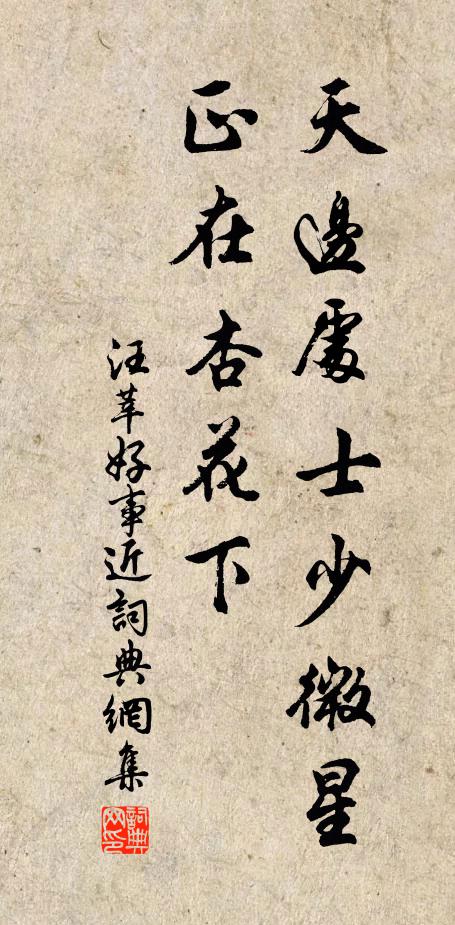 天邊處士少微星
正在杏花下
汪莘好事近詞典網集
詞典
网印